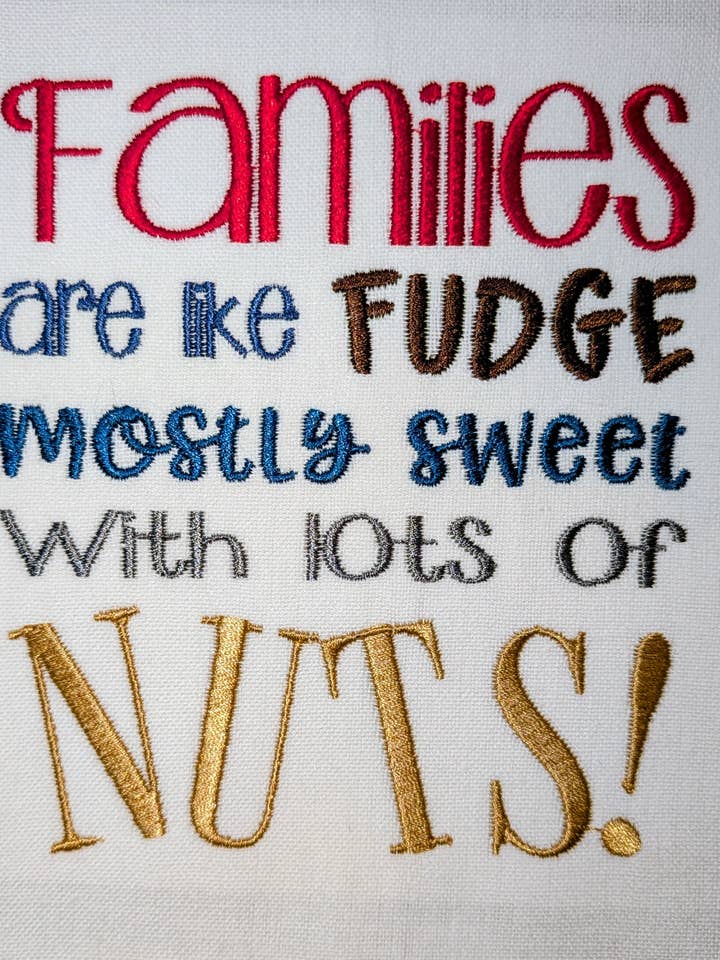 Families
are like FUDGE
mostly sweet
With lots of
NUTS!